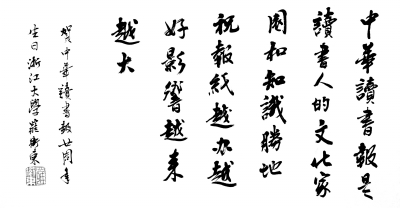 中華讀書報是
讀書人的文化家
園和知識勝地
祝報紙越办越
好影響越来
越大
賀中華讀書報廿周年
生日浙江大學羅衛東